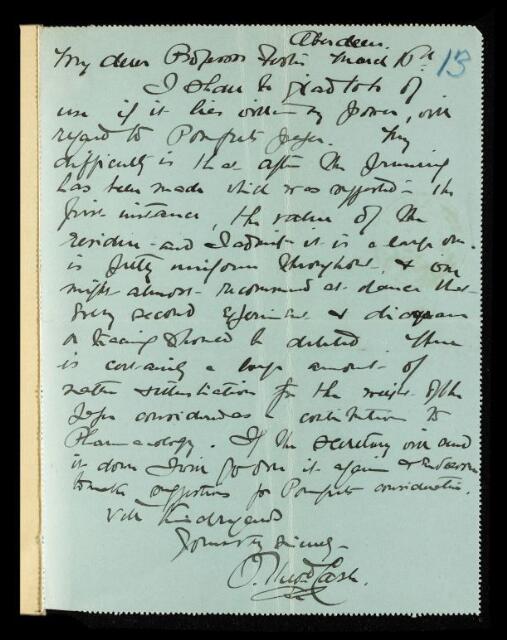 Aberdeen.
My dear Professor Foster March 10th 13
I shall be glad to be of
use if it lies within my power, with
regard to Pomfret's paper. My
difficulty is that after the pruning
has been made which was suggested in the
first instance, the value of the
residue - and I admit it is a large one.
is pretty uniform throughout, & one
might almost recommend at chance that
every second experiment & diagram
or tracing should be deleted. There
is certainly a large amount of
matter & illustration for the weight of the
paper considered as a contribution to
Pharmacology. If the Secretary will send
it down I will go over it again & endeavour
to make suggestions for Pomfret's consideration.
With kind regards
Yours very sincerely
J. Theod. Cash.